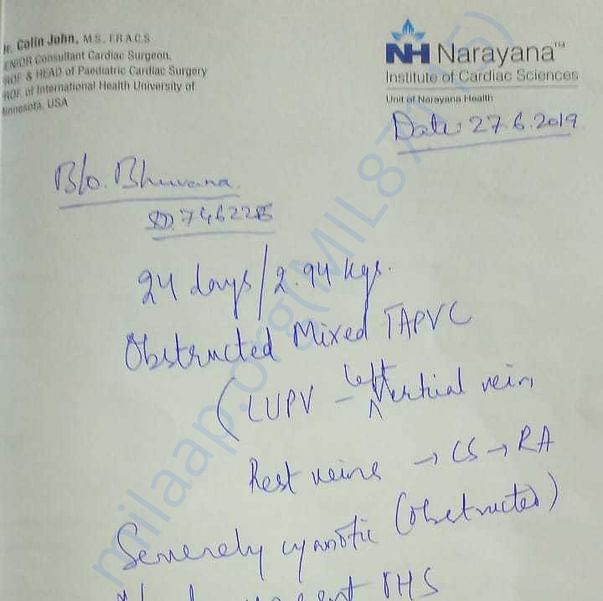 r. Colin John, M.S, F.R.A.C.S
ENIOR Consultant Cardiac Surgeon,
ROF & HEAD of Paediatric Cardiac Surgery
ROF. of International Health University of
innesota, USA
NH Narayana™
Institute of Cardiac Sciences
Unit of Narayana Health
Date: 27.6.2019
B/o. Bhuvana.
24 days/2.94 kgs.
Obstructed Mixed TAPVC
(LUPV - left vertical vein
Rest veins → CS → RA
Severely cyanotic (obstructed)
milaap.org(MIL87